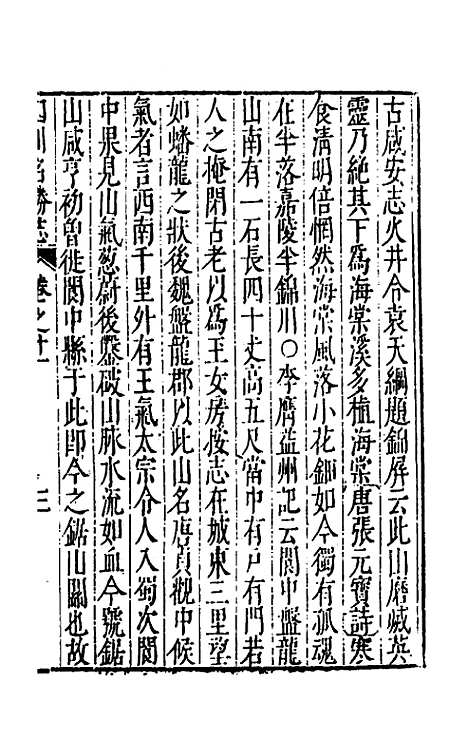 古咸安志火井令袁天綱題錦屏云此山磨㓕英
靈乃絕其下爲海棠溪多植海棠唐張元寶詩寒
食清明倍惘然海棠風落小花鈿如今獨有孤魂
在半落嘉陵半錦川〇李膺益州記云閬中盤龍
山南有一石長四十丈高五尺當中有戸有門若
人之掩閉古老以爲玉女房按志在城東三里望
如蟠龍之狀後魏盤龍郡以此山名唐貞觀中候
氣者言西南千里外有王氣太宗令人入蜀次閬
中果見山氣葱蔚後鑿破山脉水流如血今號鋸
山咸亨初曾徙閬中縣于此卽今之鋸山關也故
四川名勝志 卷之廿 三